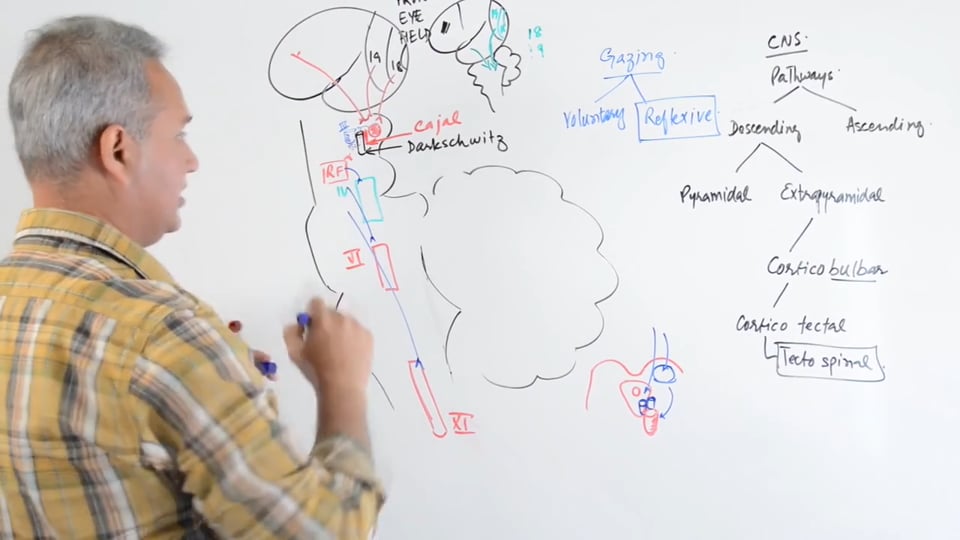 EYE
FIELD
19
18
18
19
Cajal
Darkschwitz
IRF
IV
VI
XI
Gazing
Voluntary
Reflexive
CNS
Pathways
Doscending
Ascending
Pyramidal
Extrapyramidal
Cortico bulbar
Cortico tectal
Tecto spinal